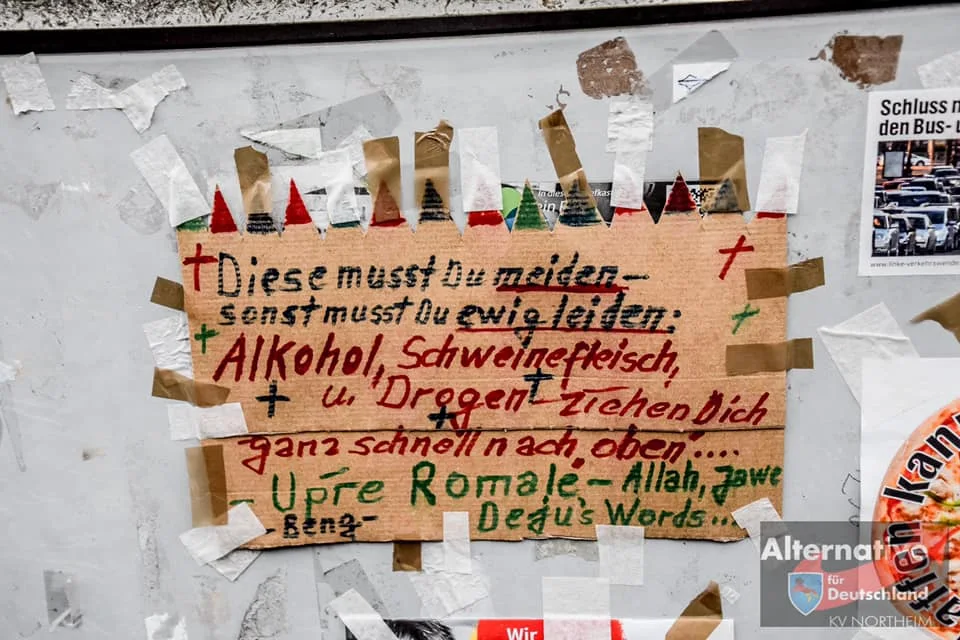 Schluss
den Bus-
www.linke-verkehrswende
Diese musst Du meiden –
sonst musst Du ewig leiden:
Alkohol, Schweinefleisch,
u. Drogen – ziehen Dich
ganz schnell nach „oben“....
- Upre Romale, – Allah, Jawe
- Beng - Deģu's Words...
Alternative
für
Deutschland
KV NORTHEIM
Wir